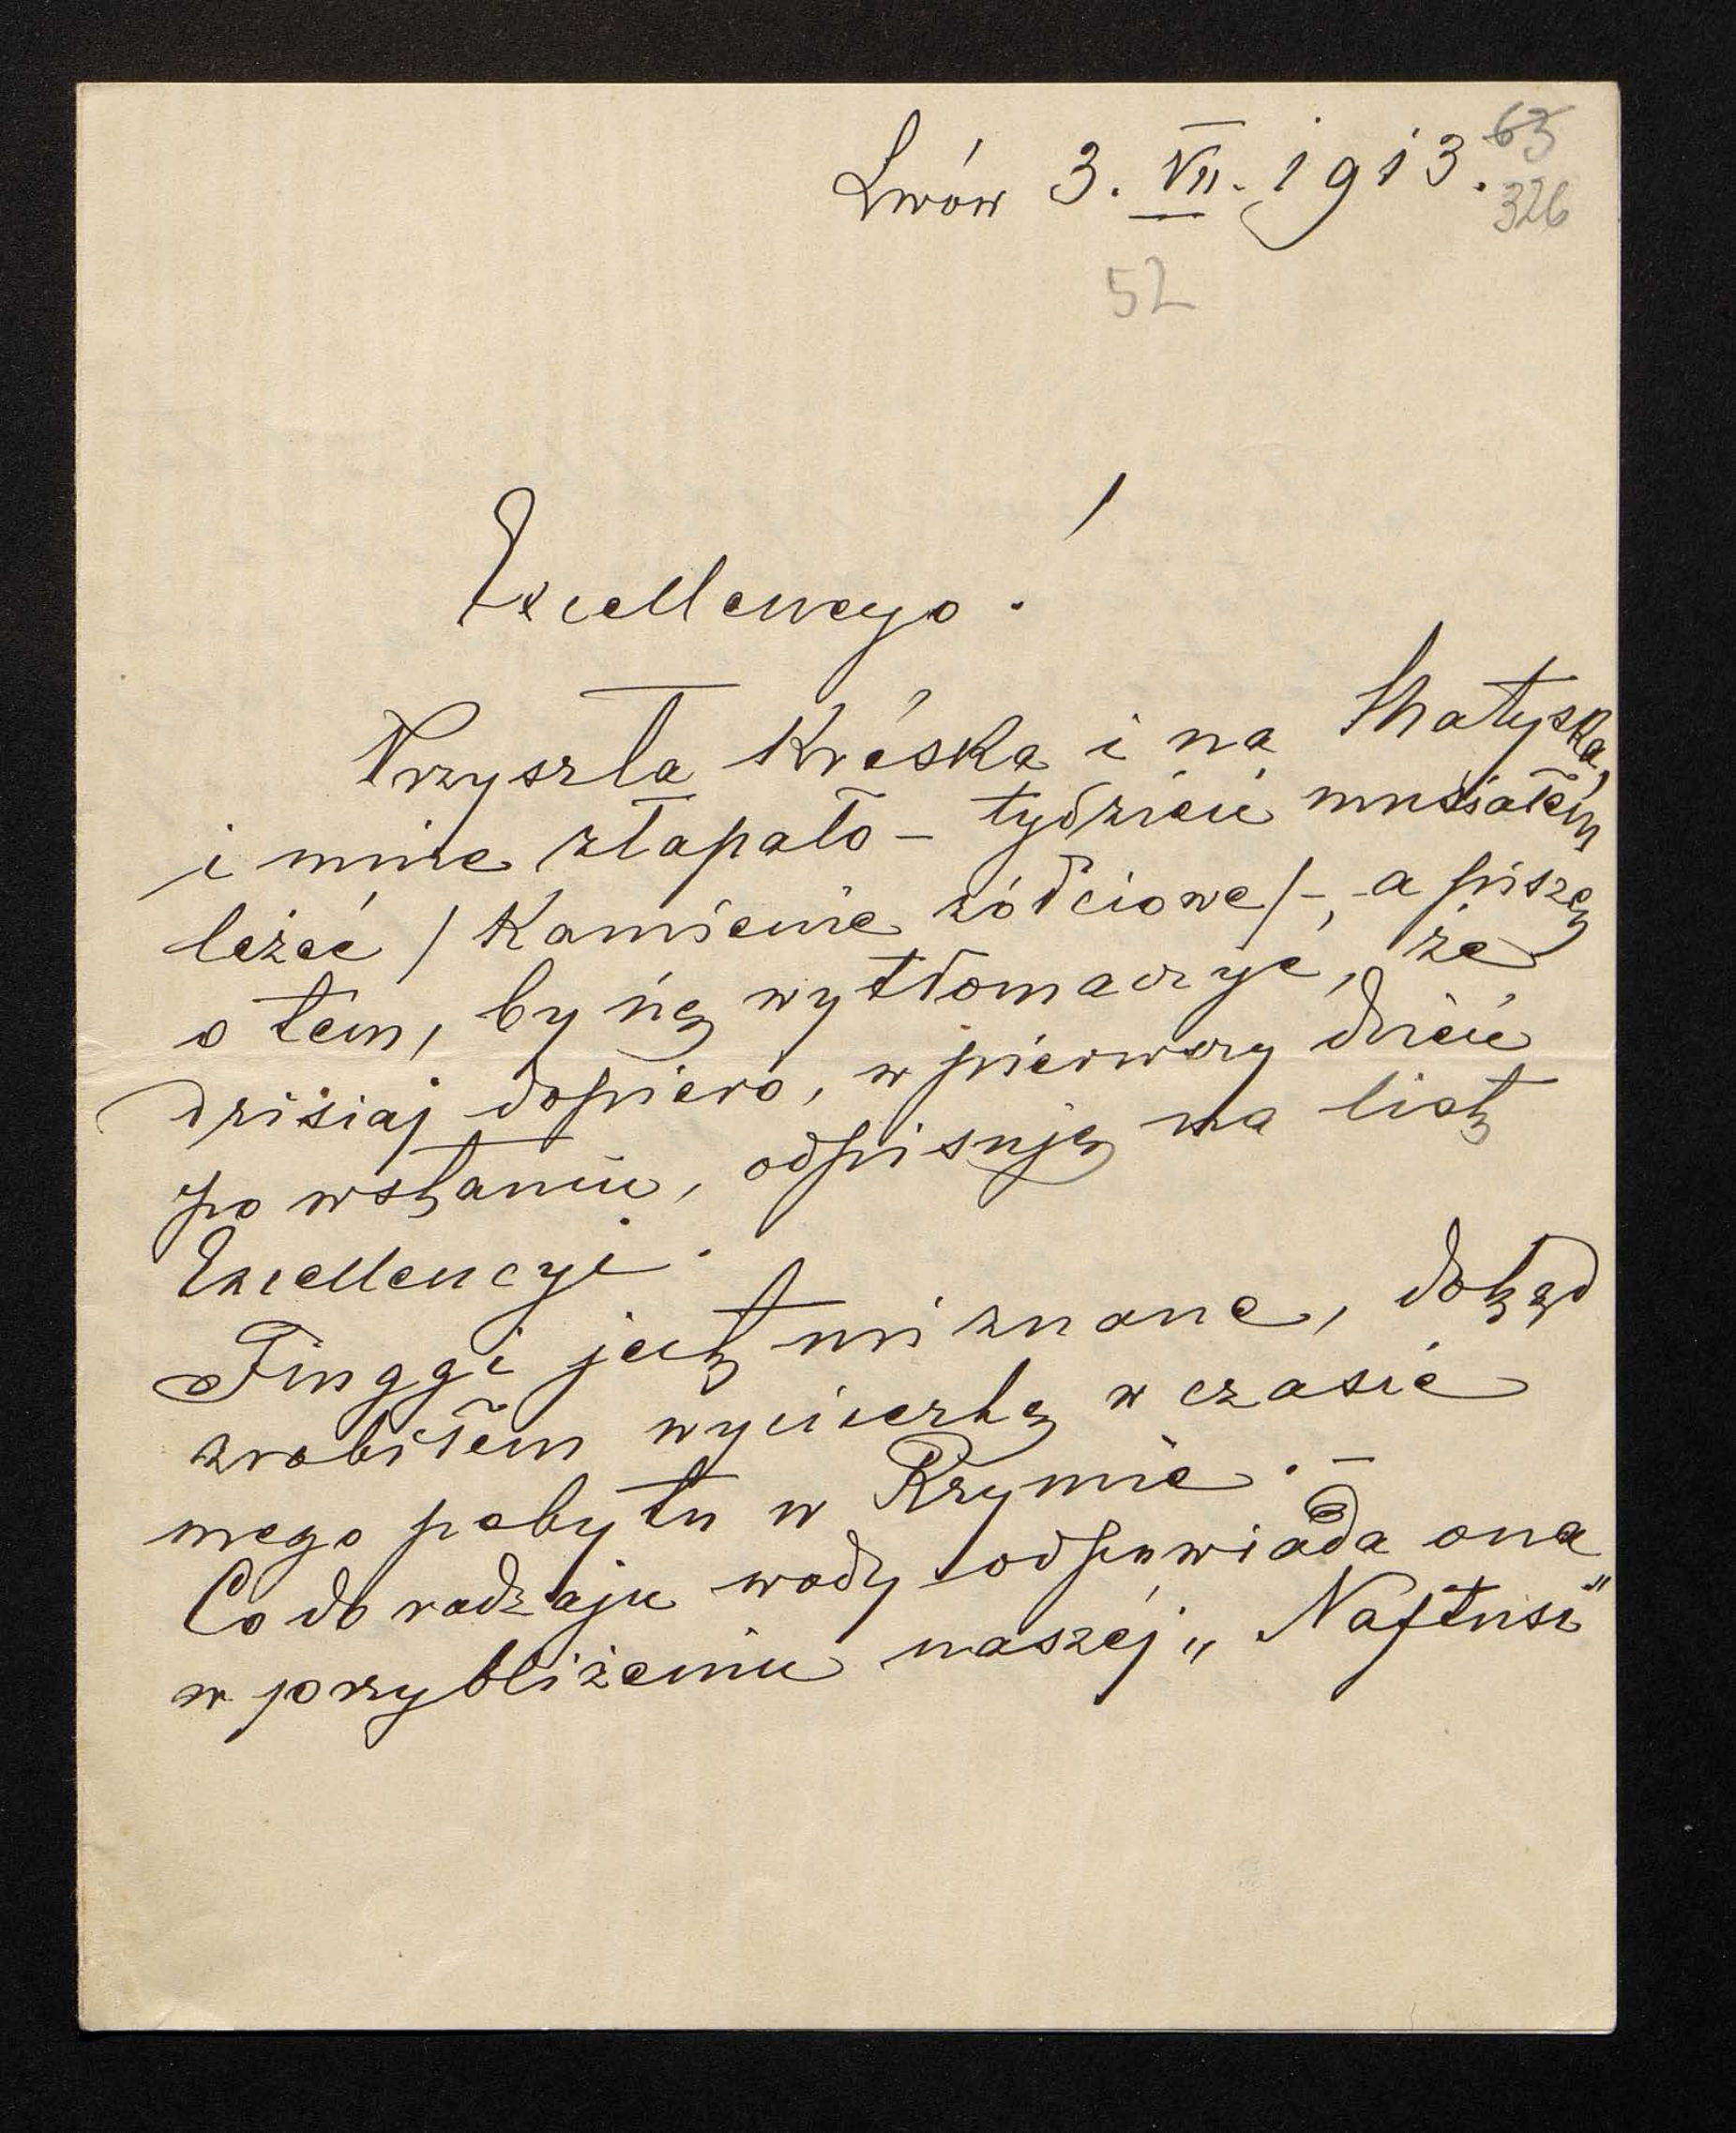 Lwów 3. VII. 1913.
63
326
52
Excellencyo!
Przyszła Kréska i na Matyska,
i mnie złapało – tydzień musiałem
leżeć / Kamienie żółciowe / –, a piszę
o tém, by się wytłomaczyć, że
dzisiaj dopiero, w pierwszy dzień
po wstaniu, odpisuję na list
Excellencyi.
Finggi jest mi znane, dokąd
zrobiłem wycieczkę w czasie
mego pobytu w Rzymie. –
Co do rodzaju wody odpowiada ona
w przybliżeniu naszéj „Naftusi"